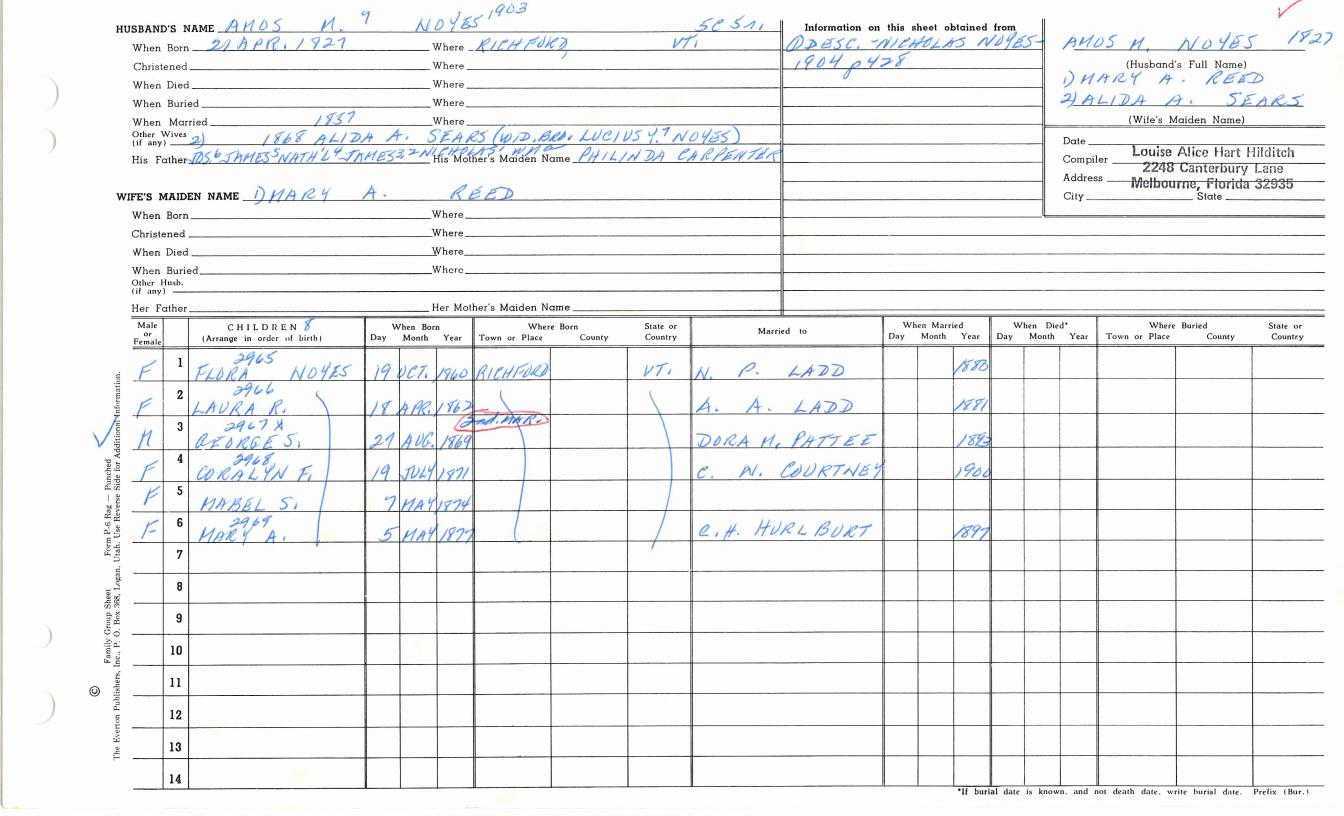 HUSBAND'S NAME AMOS M. 7 NOYES 1903
When Born 21 APR. 1827 Where RICHFORD, VT.
Christened Where
When Died Where
When Buried Where
When Married 1857 Where
Other Wives (if any) 2) 1868 ALIDA A. SEARS (WID. BRO. LUCIUS Y.7 NOYES)
His Father 6 JAMES5 NATH'L4 JAMES3 2 NICHOLAS1 WM His Mother's Maiden Name PHILINDA CARPENTER
WIFE'S MAIDEN NAME 1) MARY A. REED
When Born Where
Christened Where
When Died Where
When Buried Where
Other Husb. (if any)
Her Father Her Mother's Maiden Name
Information on this sheet obtained from
① DESC. - NICHOLAS NOYES -
1904 p 428
AMOS M. NOYES 1827
(Husband's Full Name)
1) MARY A. REED
2) ALIDA A. SEARS
(Wife's Maiden Name)
Date
Compiler Louise Alice Hart Hilditch
Address 2248 Canterbury Lane
Melbourne, Florida 32935
City State
Male or Female CHILDREN 8 (Arrange in order of birth) When Born Day Month Year Where Born Town or Place County State or Country Married to When Married Day Month Year When Died* Day Month Year Where Buried Town or Place County State or Country
2965
F 1 FLORA NOYES 19 OCT. 1860 RICHFORD VT. N. P. LADD 1880
2966
F 2 LAURA R. 18 APR. 1862 A. A. LADD 1881
2nd. MAR.
2967 X
M 3 GEORGE S. 27 AUG. 1869 DORA M. PATTEE 1893
2968
F 4 CORALYN F. 19 JULY 1871 C. N. COURTNEY 1900
F 5 MABEL S. 7 MAY 1874
2969
F 6 MARY A. 5 MAY 1877 C. H. HURLBURT 1897
7
8
9
10
11
12
13
14
*If burial date is known, and not death date, write burial date. Prefix (Bur.)
© Family Group Sheet Form P-6 Rag — Punched
The Everton Publishers, Inc., P. O. Box 368, Logan, Utah. Use Reverse Side for Additional Information.